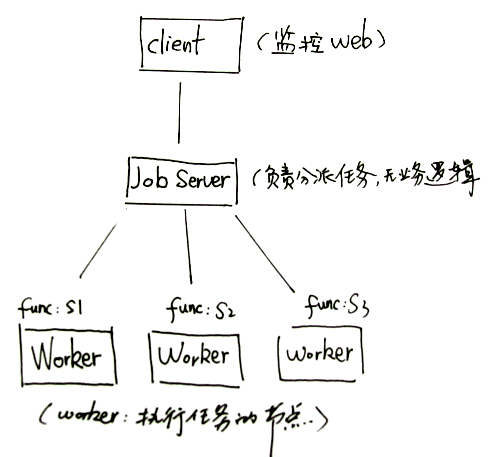 client （监控web）
Job Server （负责分派任务，无业务逻辑
func: S1 func: S2 func: S3
Worker Worker worker
（worker：执行任务的节点..）